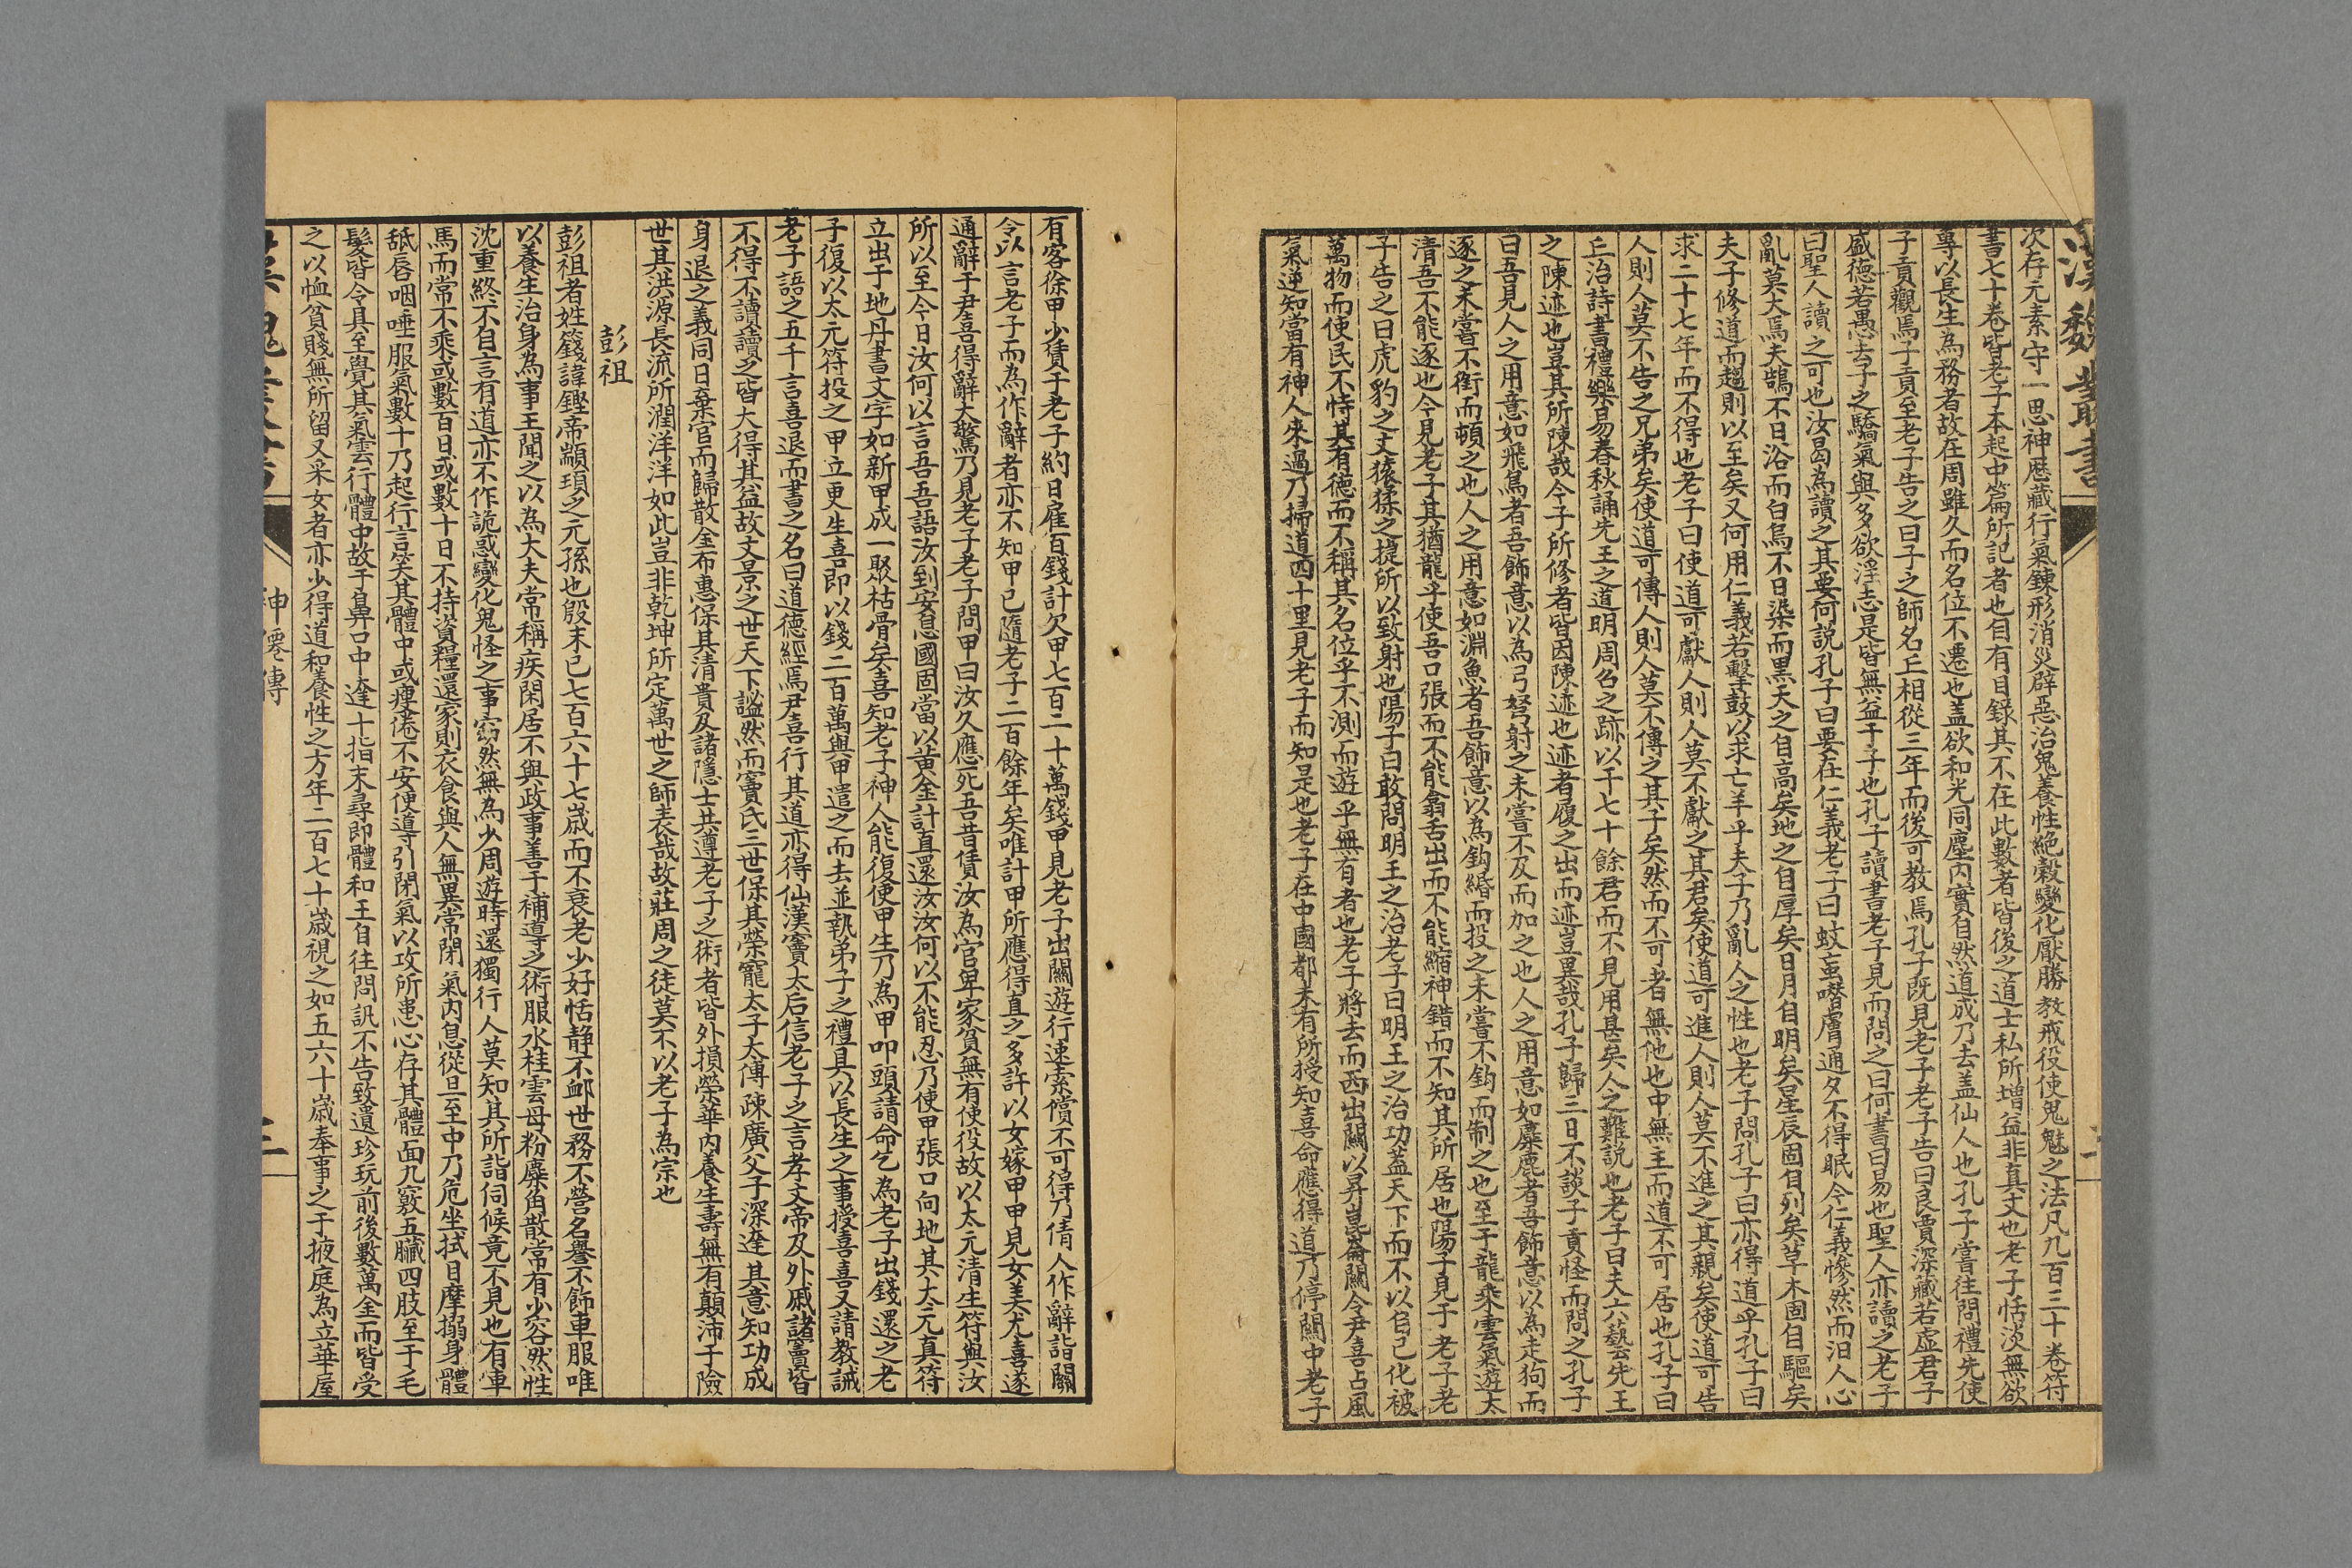 漢魏叢書
次存元素守一思神歷藏行氣鍊形消災辟惡治鬼養性絕穀變化厭勝教戒役使鬼魅之法凡九百三十卷符
書七十卷皆老子本起中篇所記者也自有目錄其不在此數者皆後之道士私所增益非真文也老子恬淡無欲
專以長生為務者故在周雖久而名位不遷也蓋欲和光同塵內實自然道成乃去蓋仙人也孔子嘗往問禮先使
子貢觀焉子貢至老子告之曰子之師名丘相從三年而後可教焉孔子既見老子老子告曰良賈深藏若虛君子
盛德若愚去子之驕氣與多欲淫志是皆無益于子也孔子讀書老子見而問之曰何書曰易也聖人亦讀之老子
曰聖人讀之可也汝曷為讀之其要何說孔子曰要在仁義老子曰蚊䖟噆膚通夕不得眠今仁義慘然而汩人心
亂莫大焉夫鵠不日浴而白烏不日染而黑天之自高矣地之自厚矣日月自明矣星辰固自列矣草木固自驅矣
夫子修道而趨則以至矣又何用仁義若擊鼓以求亡羊乎夫子乃亂人之性也老子問孔子曰亦得道乎孔子曰
求二十七年而不得也老子曰使道可獻人則人莫不獻之其君矣使道可進人則人莫不進之其親矣使道可告
人則人莫不告之兄弟矣使道可傳人則人莫不傳之其子矣然而不可者無他也中無主而道不可居也孔子曰
丘治詩書禮樂易春秋誦先王之道明周召之跡以干七十餘君而不見用甚矣人之難說也老子曰夫六藝先王
之陳迹也豈其所陳哉今子所修者皆因陳迹也迹者履之出而迹豈異哉孔子歸三日不談子貢怪而問之孔子
曰吾見人之用意如飛鳥者吾飾意以為弓弩射之未嘗不及而加之也人之用意如麋鹿者吾飾意以為走狗而
逐之未嘗不銜而頓之也人之用意如淵魚者吾飾意以為鈎緡而投之未嘗不鈎而制之也至于龍乘雲氣遊太
清吾不能逐也今見老子其猶龍乎使吾口張而不能翕舌出而不能縮神錯而不知其所居也陽子見于老子老
子告之曰虎豹之文猿猱之捷所以致射也陽子曰敢問明王之治老子曰明王之治功蓋天下而不以自己化被
萬物而使民不恃其有德而不稱其名位乎不測而遊乎無有者也老子將去而西出關以昇崑崙關令尹喜占風
氣逆知當有神人來過乃掃道四十里見老子而知是也老子在中國都未有所授知喜命應得道乃停關中老子
有客徐甲少賃于老子約日雇百錢計欠甲七百二十萬錢甲見老子出關遊行速索償不可得乃倩人作辭詣關
令以言老子而為作辭者亦不知甲已隨老子二百餘年矣唯計甲所應得直之多許以女嫁甲甲見女美尤喜遂
通辭于尹喜得辭大驚乃見老子老子問甲曰汝久應死吾昔賃汝為官卑家貧無有使役故以太元清生符與汝
所以至今日汝何以言吾吾語汝到安息國固當以黃金計直還汝汝何以不能忍乃使甲張口向地其太元真符
立出于地丹書文字如新甲成一聚枯骨矣喜知老子神人能復使甲生乃為甲叩頭請命乞為老子出錢還之老
子復以太元符投之甲立更生喜即以錢二百萬與甲遣之而去並執弟子之禮具以長生之事授喜喜又請教誡
老子語之五千言喜退而書之名曰道德經焉尹喜行其道亦得仙漢竇太后信老子之言孝文帝及外戚諸竇皆
不得不讀讀之皆大得其益故文景之世天下謐然而竇氏三世保其榮寵太子太傅疎廣父子深達其意知功成
身退之義同日棄官而歸散金布惠保其清貴及諸隱士其遵老子之術者皆外損榮華內養生壽無有顛沛于險
世其洪源長流所潤洋洋如此豈非乾坤所定萬世之師表哉故莊周之徒莫不以老子為宗也
彭祖
彭祖者姓籛諱鏗帝顓頊之元孫也殷末已七百六十七歲而不衰老少好恬静不卹世務不營名譽不飾車服唯
以養生治身為事王聞之以為大夫常稱疾閑居不與政事善于補導之術服水桂雲母粉麋角散常有少容然性
沈重終不自言有道亦不作詭惑變化鬼怪之事窈然無為少周遊時還獨行人莫知其所詣伺候竟不見也有車
馬而常不乘或數百日或數十日不持資糧還家則衣食與人無異常閉氣內息從旦至中乃危坐拭目摩搦身體
舐唇咽唾服氣數十乃起行言笑其體中或瘦倦不安便導引閉氣以攻所患心存其體面九竅五臟四肢至于毛
髮皆令具至覺其氣雲行體中故于鼻口中達十指末尋即體和王自往問訊不告致遺珍玩前後數萬金而皆受
之以恤貧賤無所留又采女者亦少得道知養性之方年二百七十歲視之如五六十歲奉事之于掖庭為立華屋
漢魏叢書
神僊傳
三